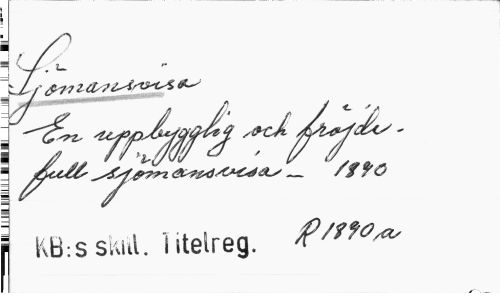 Sjömansvisa
En uppbygglig och fröjde-
full sjömansvisa – 1890
KB:s skill. Titelreg. R 1890 a